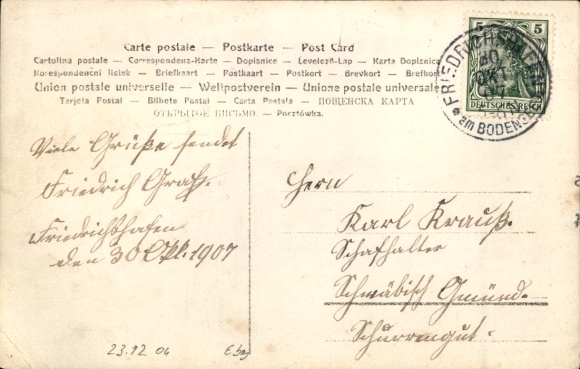 Carte postale — Postkarte — Post Card
Cartolina postale — Correspondenz-Karte — Dopisnice — Levelező-Lap — Karta Dopisnica
Korespondenční lístek — Briefkaart — Postkaart — Postkort — Brevkort — Brefkort
Union postale universelle — Weltpostverein — Unione postale universale
Tarjeta Postal — Bilhete Postal — Carta Postala — ПОЩЕНСКА КАРТА
ОТКРЫТОЕ ПИСЬМО — Pocztówka.
5 5
DEUTSCHES REICH
FRIEDRICHSHAFEN
30
OKT
07
* am BODENSEE
Viele Grüße sendet
Friedrich Graf.
Friedrichshafen
den 30 Okt. 1907
Herrn
Karl Krauß.
Schafhalter
Schwäbisch Gmünd.
Schurrengut.
23.12 04